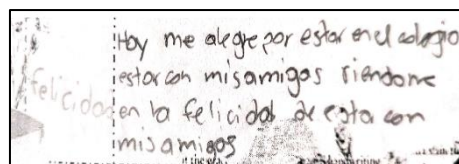 Hoy me alegre por estar en el colegio
felicidad estar con mis amigos riendome
en la felicidad de estar con
mis amigos